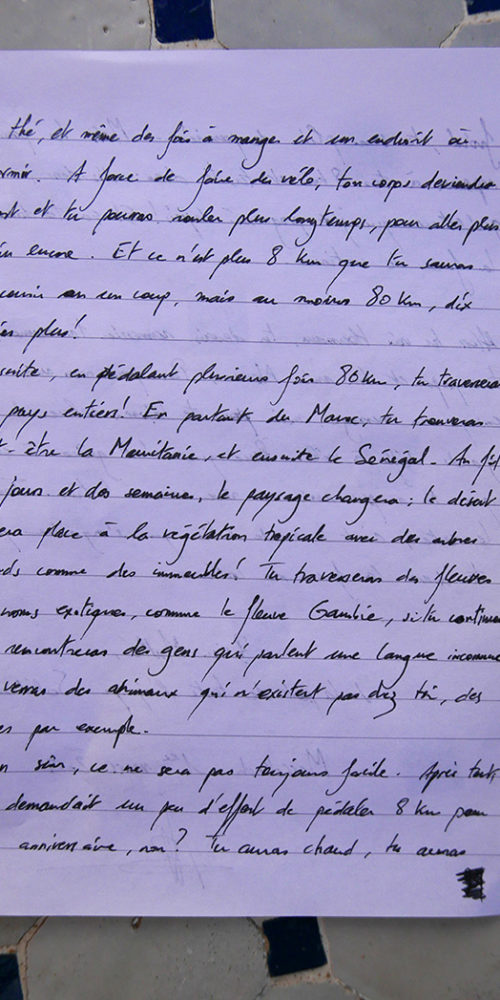 thé, et même des fois à manger et un endroit où
rmir. A force de faire du vélo, ton corps deviendra
et tu pourras rouler plus longtemps, pour aller plus
encore. Et ce n'est plus 8 km que tu sauras
courir en un coup, mais au moins 80 km, dix
plus!
suite, en pédalant plusieurs fois 80 km, tu traverseras
pays entiers! En partant du Maroc, tu trouveras
t-être la Mauritanie, et ensuite le Sénégal. Au fil
jours et des semaines, le paysage changera: le désert
era place à la végétation tropicale avec des arbres
ds comme des immeubles! Tu traverseras des fleuves
noms exotiques, comme le fleuve Gambie, si tu continues
rencontreras des gens qui parlent une langue inconnue
verras des animaux qui n'existent pas chez toi, des
es par exemple.
n sûr, ce ne sera pas toujours facile. Après tout,
demandait un peu d'effort de pédaler 8 km pour
anniversaire, non? Tu auras chaud, tu auras